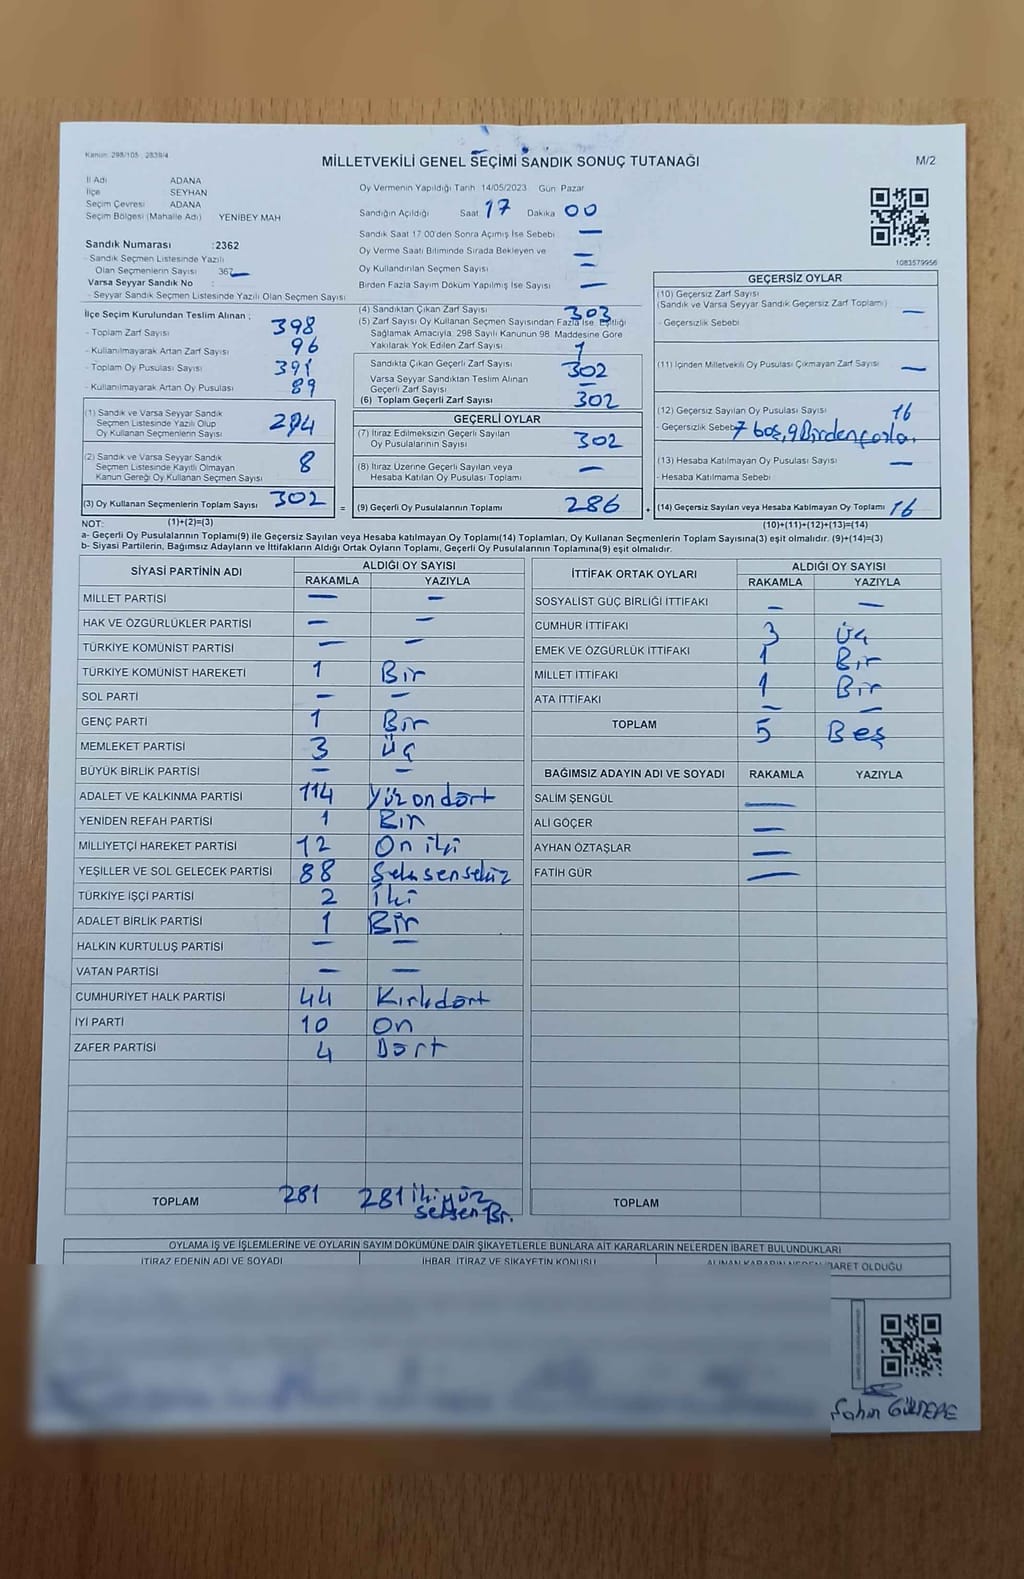 Kanun: 298/105 2839/4
MİLLETVEKİLİ GENEL SEÇİMİ SANDIK SONUÇ TUTANAĞI
M/2
İl Adı ADANA
İlçe SEYHAN
Seçim Çevresi ADANA
Seçim Bölgesi (Mahalle Adı) YENİBEY MAH
Sandık Numarası :2362
- Sandık Seçmen Listesinde Yazılı
Olan Seçmenlerin Sayısı 367
Varsa Seyyar Sandık No :
- Seyyar Sandık Seçmen Listesinde Yazılı Olan Seçmen Sayısı
Oy Vermenin Yapıldığı Tarih 14/05/2023 Gün Pazar
Sandığın Açıldığı Saat 17 Dakika 00
Sandık Saat 17.00'den Sonra Açılmış İse Sebebi —
Oy Verme Saati Bitiminde Sırada Bekleyen ve —
Oy Kullandırılan Seçmen Sayısı —
Birden Fazla Sayım Döküm Yapılmış İse Sayısı —
1083579956
İlçe Seçim Kurulundan Teslim Alınan ;
- Toplam Zarf Sayısı 398
- Kullanılmayarak Artan Zarf Sayısı 96
- Toplam Oy Pusulası Sayısı 391
- Kullanılmayarak Artan Oy Pusulası 89
(1) Sandık ve Varsa Seyyar Sandık
Seçmen Listesinde Yazılı Olup
Oy Kullanan Seçmenlerin Sayısı 294
(2) Sandık ve Varsa Seyyar Sandık
Seçmen Listesinde Kayıtlı Olmayan
Kanun Gereği Oy Kullanan Seçmen Sayısı 8
(3) Oy Kullanan Seçmenlerin Toplam Sayısı 302 =
(4) Sandıktan Çıkan Zarf Sayısı 303
(5) Zarf Sayısı Oy Kullanan Seçmen Sayısından Fazla İse, Eşitliği
Sağlamak Amacıyla, 298 Sayılı Kanunun 98. Maddesine Göre
Yakılarak Yok Edilen Zarf Sayısı 1
Sandıkta Çıkan Geçerli Zarf Sayısı 302
Varsa Seyyar Sandıktan Teslim Alınan
Geçerli Zarf Sayısı —
(6) Toplam Geçerli Zarf Sayısı 302
GEÇERLİ OYLAR
(7) İtiraz Edilmeksizin Geçerli Sayılan
Oy Pusulalarının Sayısı 302
(8) İtiraz Üzerine Geçerli Sayılan veya
Hesaba Katılan Oy Pusulası Toplamı —
(9) Geçerli Oy Pusulalarının Toplamı 286 +
GEÇERSİZ OYLAR
(10) Geçersiz Zarf Sayısı
(Sandık ve Varsa Seyyar Sandık Geçersiz Zarf Toplamı) —
- Geçersizlik Sebebi
(11) İçinden Milletvekili Oy Pusulası Çıkmayan Zarf Sayısı —
(12) Geçersiz Sayılan Oy Pusulası Sayısı 16
- Geçersizlik Sebebi 7 boş, 9 Birden fazla
(13) Hesaba Katılmayan Oy Pusulası Sayısı —
- Hesaba Katılmama Sebebi
(14) Geçersiz Sayılan veya Hesaba Katılmayan Oy Toplamı 16
NOT: (1)+(2)=(3)
(10)+(11)+(12)+(13)=(14)
a- Geçerli Oy Pusulalarının Toplamı(9) ile Geçersiz Sayılan veya Hesaba katılmayan Oy Toplamı(14) Toplamları, Oy Kullanan Seçmenlerin Toplam Sayısına(3) eşit olmalıdır. (9)+(14)=(3)
b- Siyasi Partilerin, Bağımsız Adayların ve İttifakların Aldığı Ortak Oyların Toplamı, Geçerli Oy Pusulalarının Toplamına(9) eşit olmalıdır.
SİYASİ PARTİNİN ADI ALDIĞI OY SAYISI
RAKAMLA YAZIYLA
MİLLET PARTİSİ — —
HAK VE ÖZGÜRLÜKLER PARTİSİ — —
TÜRKİYE KOMÜNİST PARTİSİ — —
TÜRKİYE KOMÜNİST HAREKETİ 1 Bir
SOL PARTİ — —
GENÇ PARTİ 1 Bir
MEMLEKET PARTİSİ 3 Üç
BÜYÜK BİRLİK PARTİSİ — —
ADALET VE KALKINMA PARTİSİ 114 Yüz on dört
YENİDEN REFAH PARTİSİ 1 Bir
MİLLİYETÇİ HAREKET PARTİSİ 12 On iki
YEŞİLLER VE SOL GELECEK PARTİSİ 88 Seksensekiz
TÜRKİYE İŞÇİ PARTİSİ 2 İki
ADALET BİRLİK PARTİSİ 1 Bir
HALKIN KURTULUŞ PARTİSİ — —
VATAN PARTİSİ — —
CUMHURİYET HALK PARTİSİ 44 Kırkdört
İYİ PARTİ 10 On
ZAFER PARTİSİ 4 Dört
TOPLAM 281 281 İki yüz
seksen Bir.
İTTİFAK ORTAK OYLARI ALDIĞI OY SAYISI
RAKAMLA YAZIYLA
SOSYALİST GÜÇ BİRLİĞİ İTTİFAKI — —
CUMHUR İTTİFAKI 3 Üç
EMEK VE ÖZGÜRLÜK İTTİFAKI 1 Bir
MİLLET İTTİFAKI 1 Bir
ATA İTTİFAKI — —
TOPLAM 5 Beş
BAĞIMSIZ ADAYIN ADI VE SOYADI RAKAMLA YAZIYLA
SALİM ŞENGÜL —
ALİ GÖÇER —
AYHAN ÖZTAŞLAR —
FATİH GÜR —
TOPLAM
OYLAMA İŞ VE İŞLEMLERİNE VE OYLARIN SAYIM DÖKÜMÜNE DAİR ŞİKAYETLERLE BUNLARA AİT KARARLARIN NELERDEN İBARET BULUNDUKLARI
İTİRAZ EDENİN ADI VE SOYADI İHBAR, İTİRAZ VE ŞİKAYETİN KONUSU ALINAN KARARIN NEDEN İBARET OLDUĞU